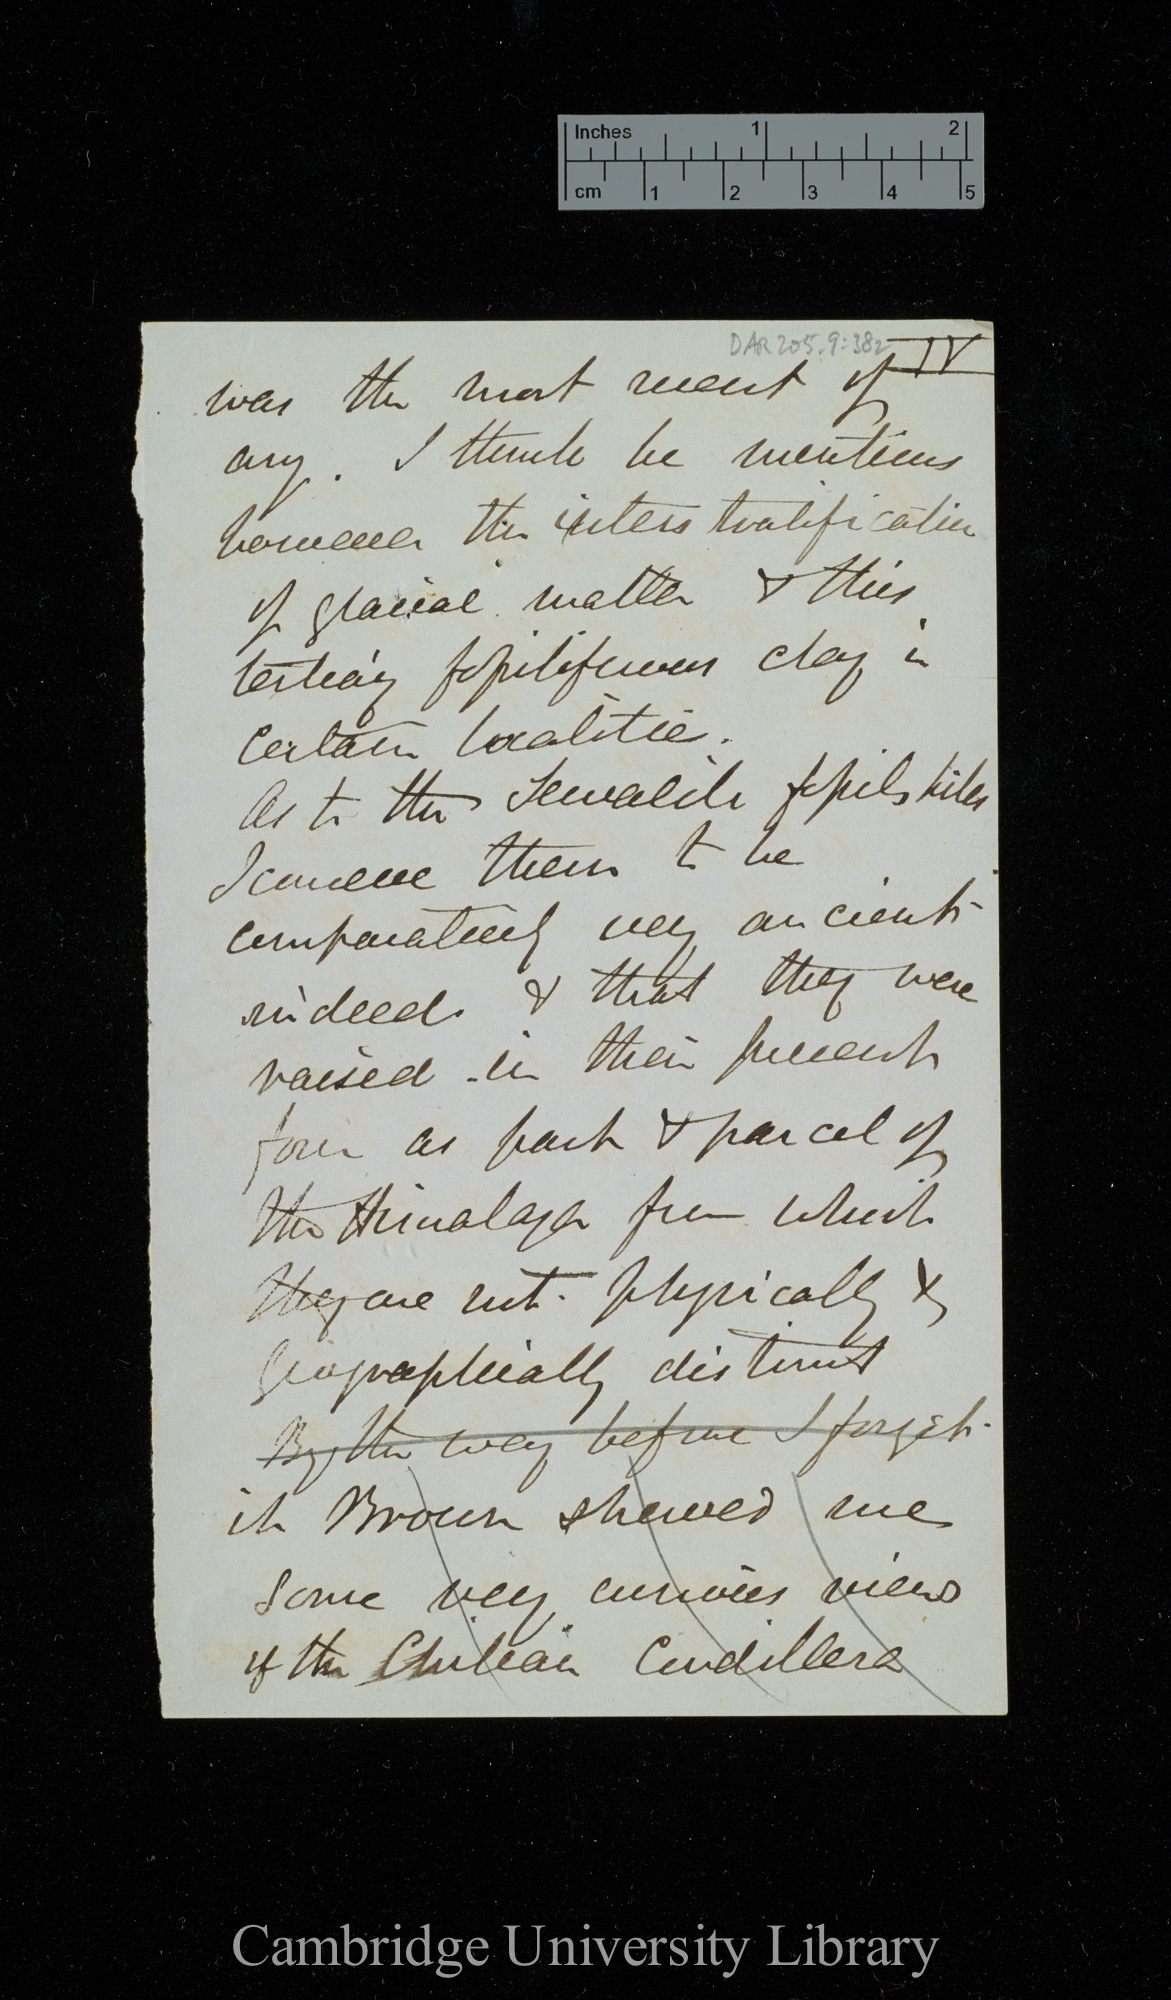 Inches 1 2
cm 1 2 3 4 5
DAR 205.9:382
IV
was the most recent of
any. I think he mentions
however the interstratification
of glacial matter & this
tertiary fossiliferous clay in
certain localities.
As to the Sewalik fossils hills
I conceive them to be
comparatively very ancient
indeed & that they were
raised in their present
form as part & parcel of
the Himalaya from which
they are not physically &
geographically distinct
By the way before I forget
it Brown shewed me
some very curious views
of the Chilian Cordillera
Cambridge University Library